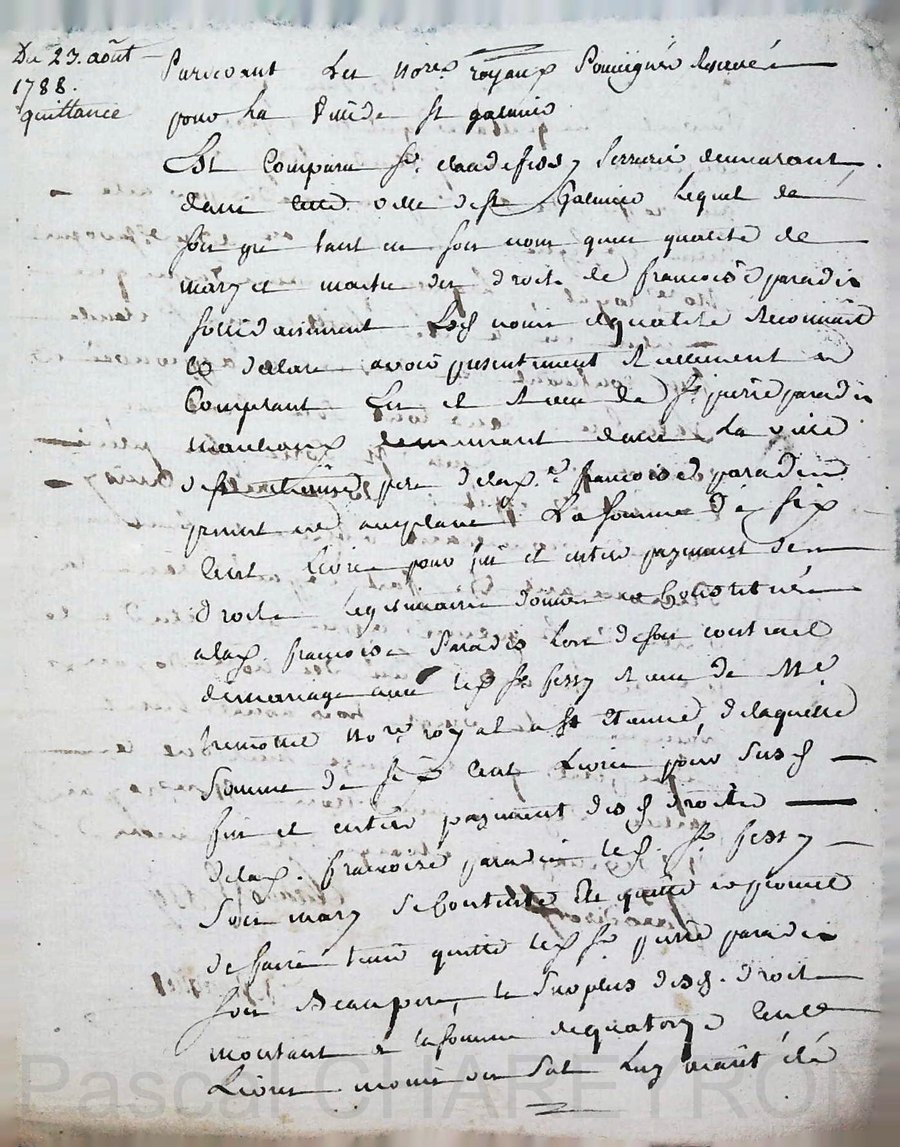 Du 23. août
1788.
quittance
Pardevant Les Nores. royaux Soussignés
pour La Ville de St galmier
Est Comparu Sr. claude fessy Serrurier demeurant
dans cette ville de St Galmier Lequel de
son gré tant en son nom qu'en qualité de
mary et maitre des droits de francoise paradis
sollidairement Lesd noms et qualité Reconnait
et declare avoir presentement et réellement en
Comptant Eu et Recu de Sr pierre paradis
demeurant dans La ville
de St etienne pere de lad. francoise paradis
present et acceptant La Somme de Six
Cent Livres pour fin et entier payement des
droits Legitimaires donnés et Constitués
a lad francoise Paradis Lors de son contract
de mariage avec led Sr fessy Recu de Me
Nore. royal a St Etienne, de laquelle
Somme de Six Cent Livres pour Susd
fin et entier payement desd droits
de lad. francoise paradis led. Sr fessy
Son mary Se Contente et quitte et promet
de faire tenir quitte led Sr pierre paradis
son Beaupere, le Surplus desd. droits
montant a la somme de quatorze Cent
Livres moins un Sol Luy aiant été
Pascal CHAREYRON